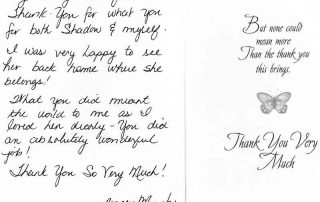 Thank-You for what you
for both Shadow & myself.
I was very happy to see
her back home where she
belongs!
What you did meant
the world to me as I
loved her dearly - You did
an absolutely wonderful
job!
Thank You So Very Much!
But none could
mean more
Than the thank you
this brings.
Thank You Very
Much